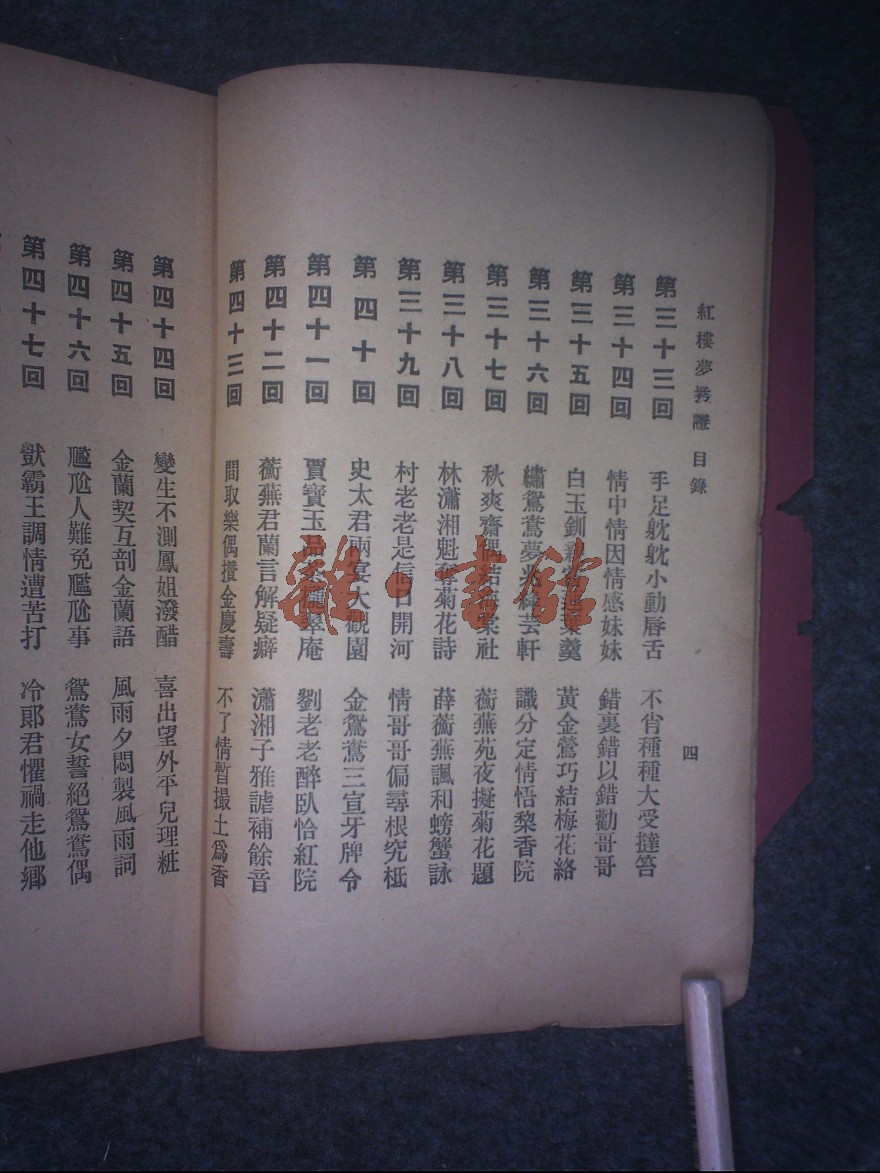 紅樓夢攷證 目錄
四
第三十三回 手足躭躭小動唇舌 不肖種種大受撻笞
第三十四回 情中情因情感妹妹 錯裏錯以錯勸哥哥
第三十五回 白玉釧親嘗蓮葉羹 黃金鶯巧結梅花絡
第三十六回 繡鴛鴦夢兆絳芸軒 識分定情悟棃香院
第三十七回 秋爽齋偶結海棠社 蘅蕪苑夜擬菊花題
第三十八回 林瀟湘魁奪菊花詩 薛蘅蕪諷和螃蟹詠
第三十九回 村老老是信口開河 情哥哥偏尋根究柢
第四十回 史太君兩宴大觀園 金鴛鴦三宣牙牌令
第四十一回 賈寶玉品茶櫳翠庵 劉老老醉臥怡紅院
第四十二回 蘅蕪君蘭言解疑癖 瀟湘子雅謔補餘音
第四十三回 閒取樂偶攢金慶壽 不了情暫撮土爲香
第四十四回 變生不測鳳姐潑醋 喜出望外平兒理粧
第四十五回 金蘭契互剖金蘭語 風雨夕悶製風雨詞
第四十六回 尷尬人難免尷尬事 鴛鴦女誓絕鴛鴦偶
第四十七回 獃霸王調情遭苦打 冷郎君懼禍走他鄉
雜·書館